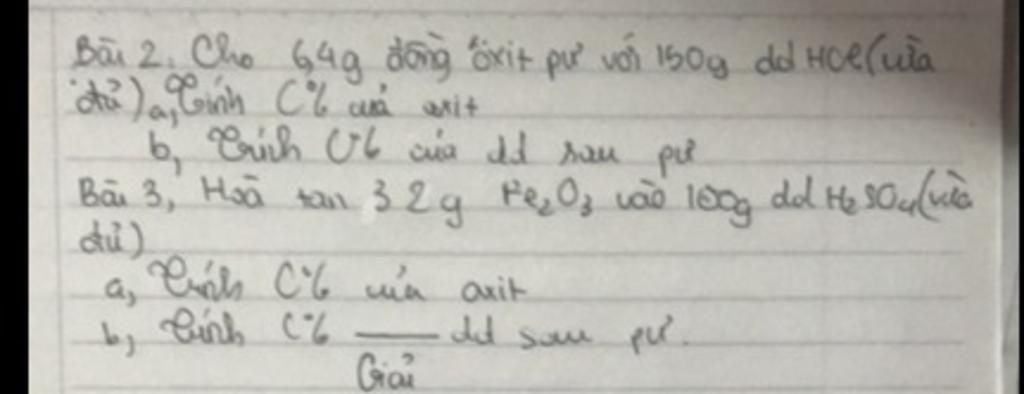 Bài 2. Cho 6,4g đồng ôxit pư với 150g dd HCl (vừa
đủ) a, Tính C% của axit
b, Tính C% của dd sau pư
Bài 3, Hoà tan 32g Fe2O3 vào 100g dd H2SO4 (vừa
đủ)
a, Tính C% của axit
b, Tính C% —— dd sau pư.
Giải